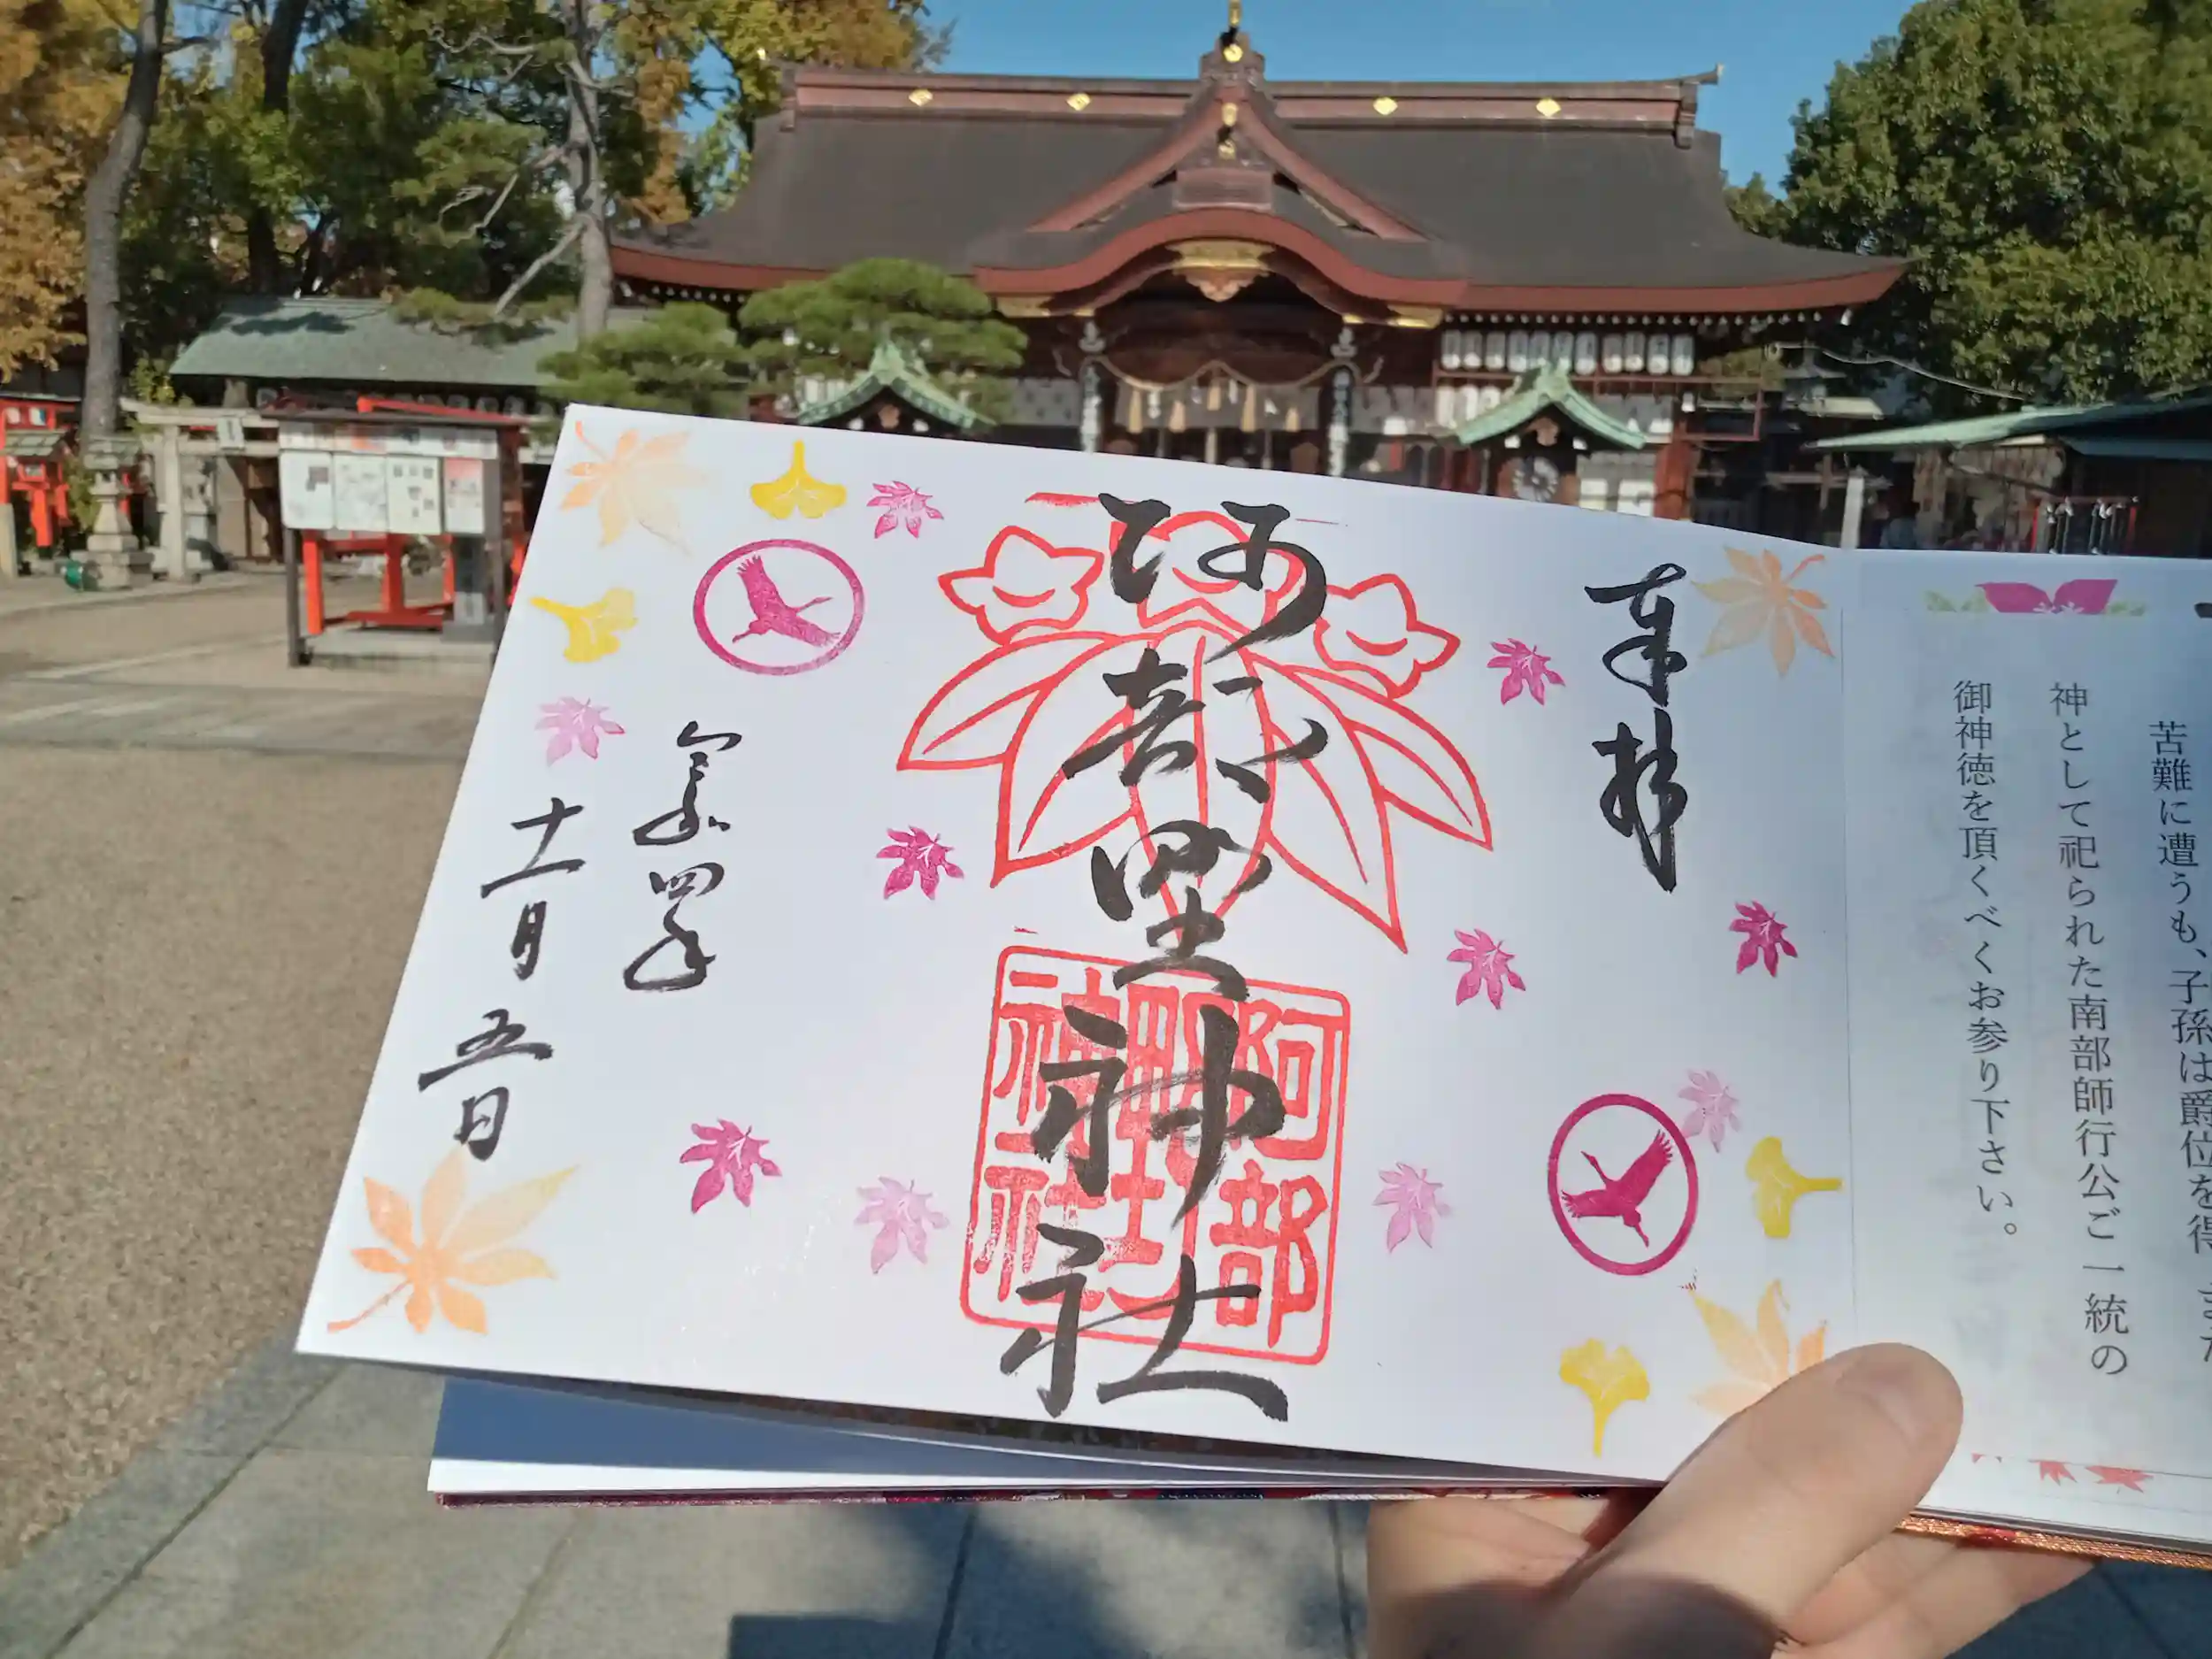 苦難に遭うも、子孫は爵位を得
神として祀られた南部師行公ご一統の
御神徳を頂くべくお参り下さい。
奉拝
阿部野神社
阿部
野社
神社
令和四年
十一月五日